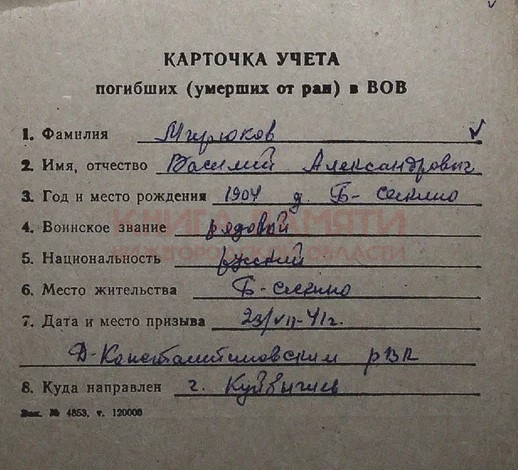 КАРТОЧКА УЧЕТА
погибших (умерших от ран) в ВОВ
1. Фамилия
2. Имя, отчество Василий Александрович
3. Год и место рождения 1904 д. Б-
КНИГА ПАМЯТИ
4. Воинское звание рядовой
НИЖЕГОРОДСКОЙ ОБЛАСТИ
5. Национальность русский
6. Место жительства Б-
7. Дата и место призыва 23/VII-41г.
Д-Константиновским РВК
8. Куда направлен г. Куйбышев
Зак. № 4853, т. 120000